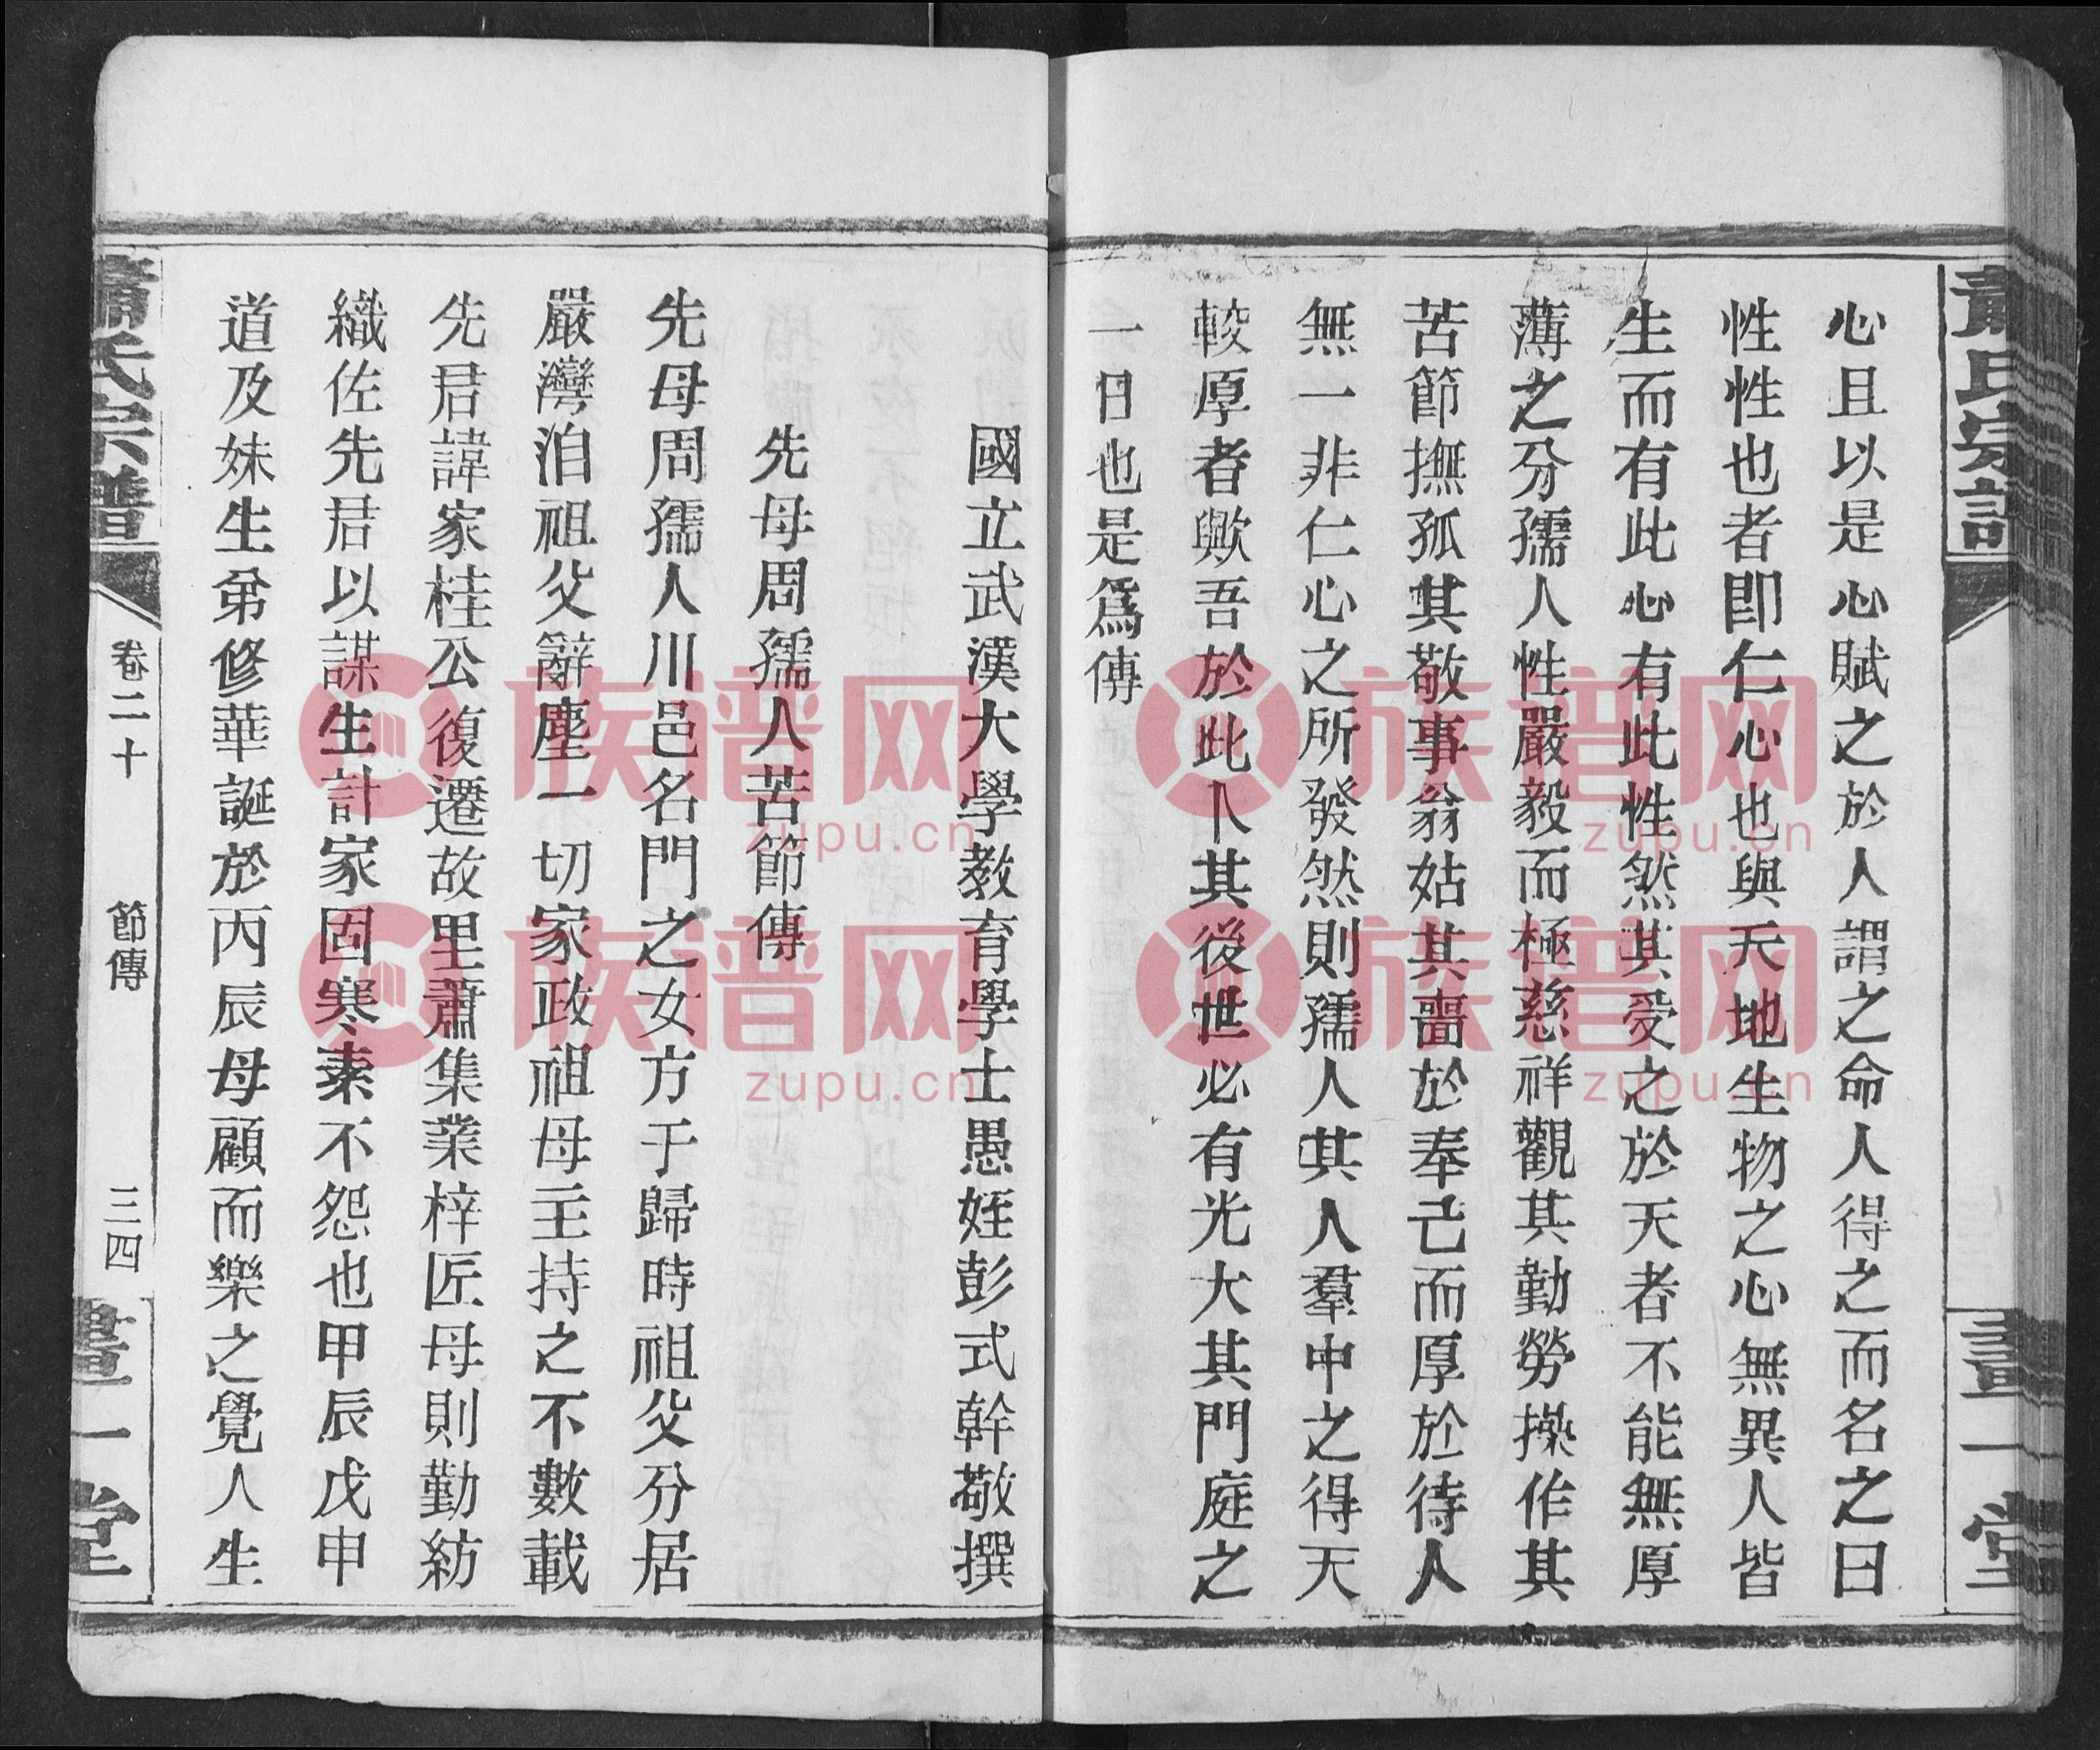 蕭氏宗譜
畫一堂
心且以是心賦之於人謂之命人得之而名之曰
性性也者卽仁心也與天地生物之心無異人皆
生而有此心有此性然其受之於天者不能無厚
薄之分孺人性嚴毅而極慈祥觀其勤勞操作其
苦節撫孤其敬事翁姑其嗇於奉己而厚於待人
無一非仁心之所發然則孺人其人羣中之得天
較厚者歟吾於此卜其後世必有光大其門庭之
一日也是爲傳
國立武漢大學教育學士愚姪彭式幹敬撰
先母周孺人苦節傳
先母周孺人川邑名門之女方于歸時祖父分居
嚴灣洎祖父辭塵一切家政祖母主持之不數載
先君諱家桂公復遷故里蕭集業梓匠母則勤紡
織佐先君以謀生計家固寒素不怨也甲辰戊申
道及妹生弟修華誕於丙辰母顧而樂之覺人生
蕭氏宗譜
卷二十
節傳
三四
畫一堂
族谱网
zupu.cn
族谱网
zupu.cn
族谱网
zupu.cn
族谱网
zupu.cn